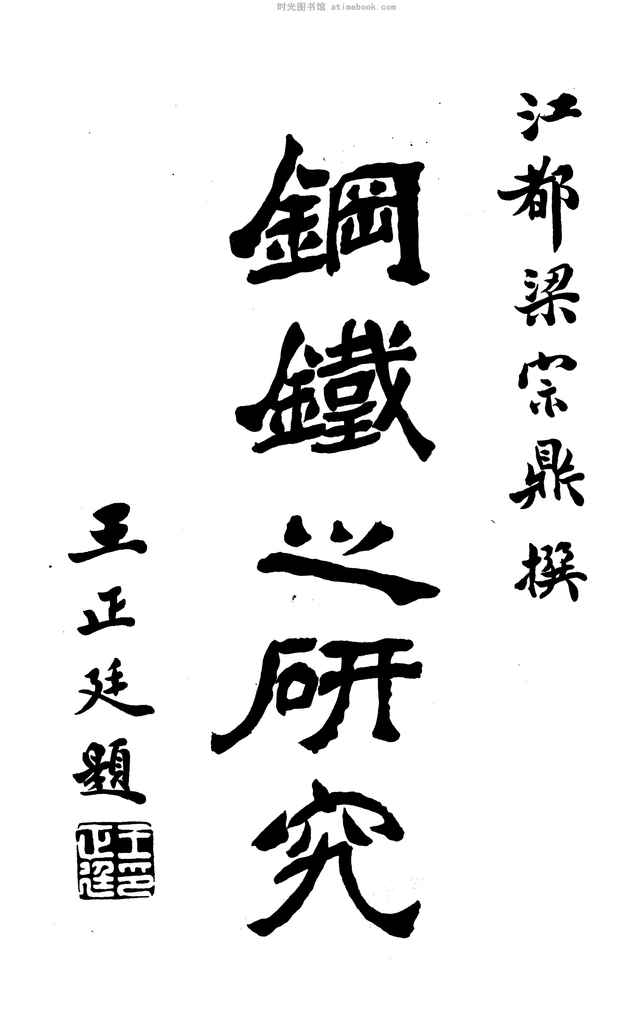 时光图书馆 atimebook.com
江都梁宗鼎撰
鋼鐵之研究
王正廷題
王正廷印